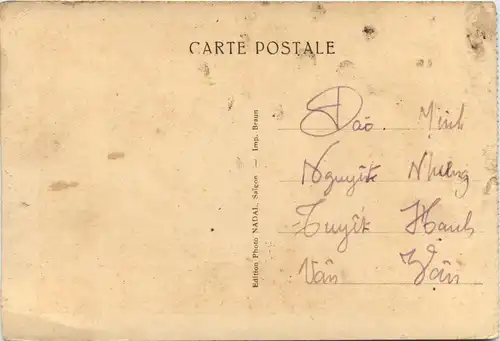 CARTE POSTALE
Edition Photo NADAL, Saigon — Imp. Braun
Đào Minh
Nguyệt Nhung
Tuyết Hanh
Vân Vân